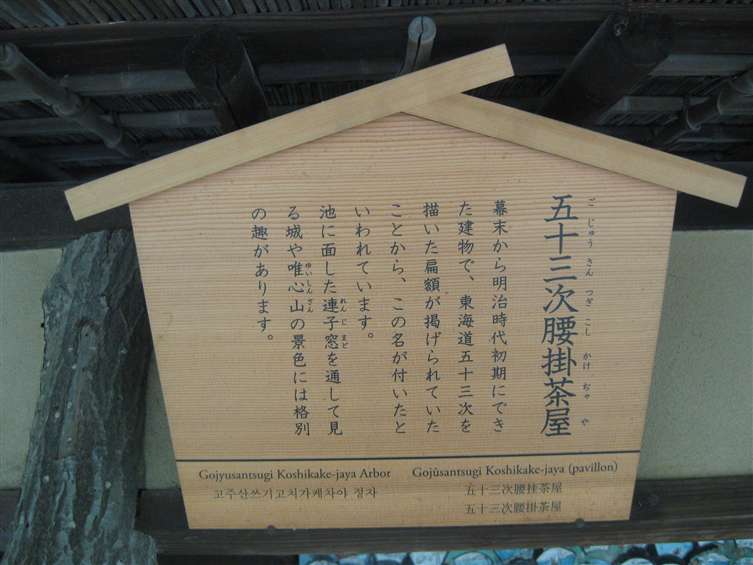 ご じゅう さん つぎ こし かけ ぢゃ や
五十三次腰掛茶屋
幕末から明治時代初期にでき
た建物で、東海道五十三次を
描いた扁額が掲げられていた
ことから、この名が付いたと
いわれています。
れんじまど
池に面した連子窓を通して見
ゆいしんざん
る城や唯心山の景色には格別
の趣があります。
Gojyusantsugi Koshikake-jaya Arbor
고주산쓰기고치가케차야 정자
Gojûsantsugi Koshikake-jaya (pavillon)
五十三次腰挂茶屋
五十三次腰掛茶屋